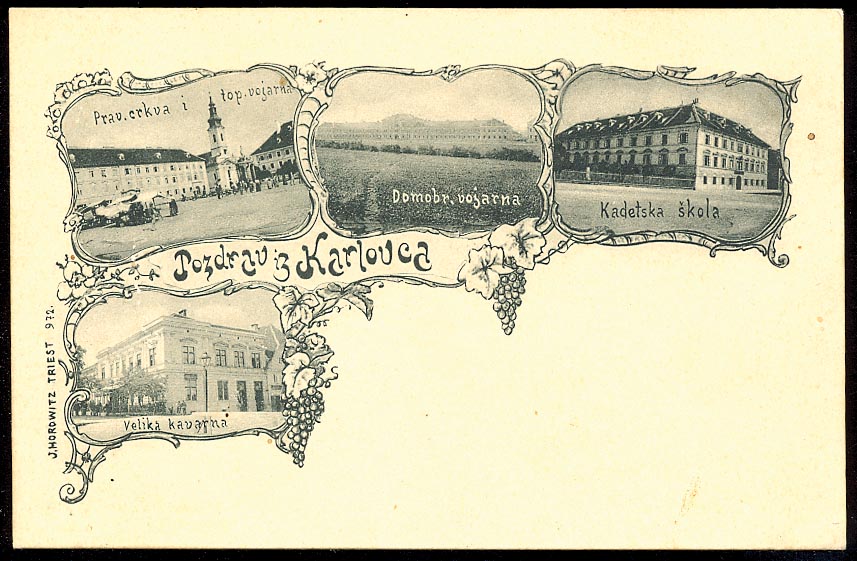 Prav. crkva i top. vojarna
Domobr. vojarna
Kadetska škola
Pozdrav iz Karlovca
Velika kavarna
J. HOROWITZ TRIEST 972.